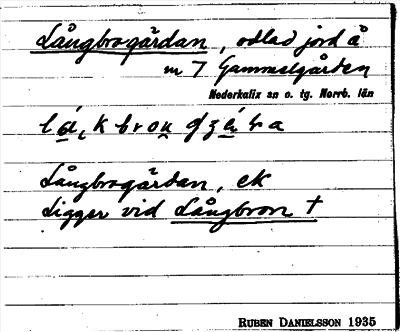 Långbrogårdan, odlad jord å
nr 7 Gammelgården
Nederkalix sn o. tg. Norrb. län
Långbrogårdan, ek
Ligger vid Långbron †
RUBEN DANIELSSON 1935